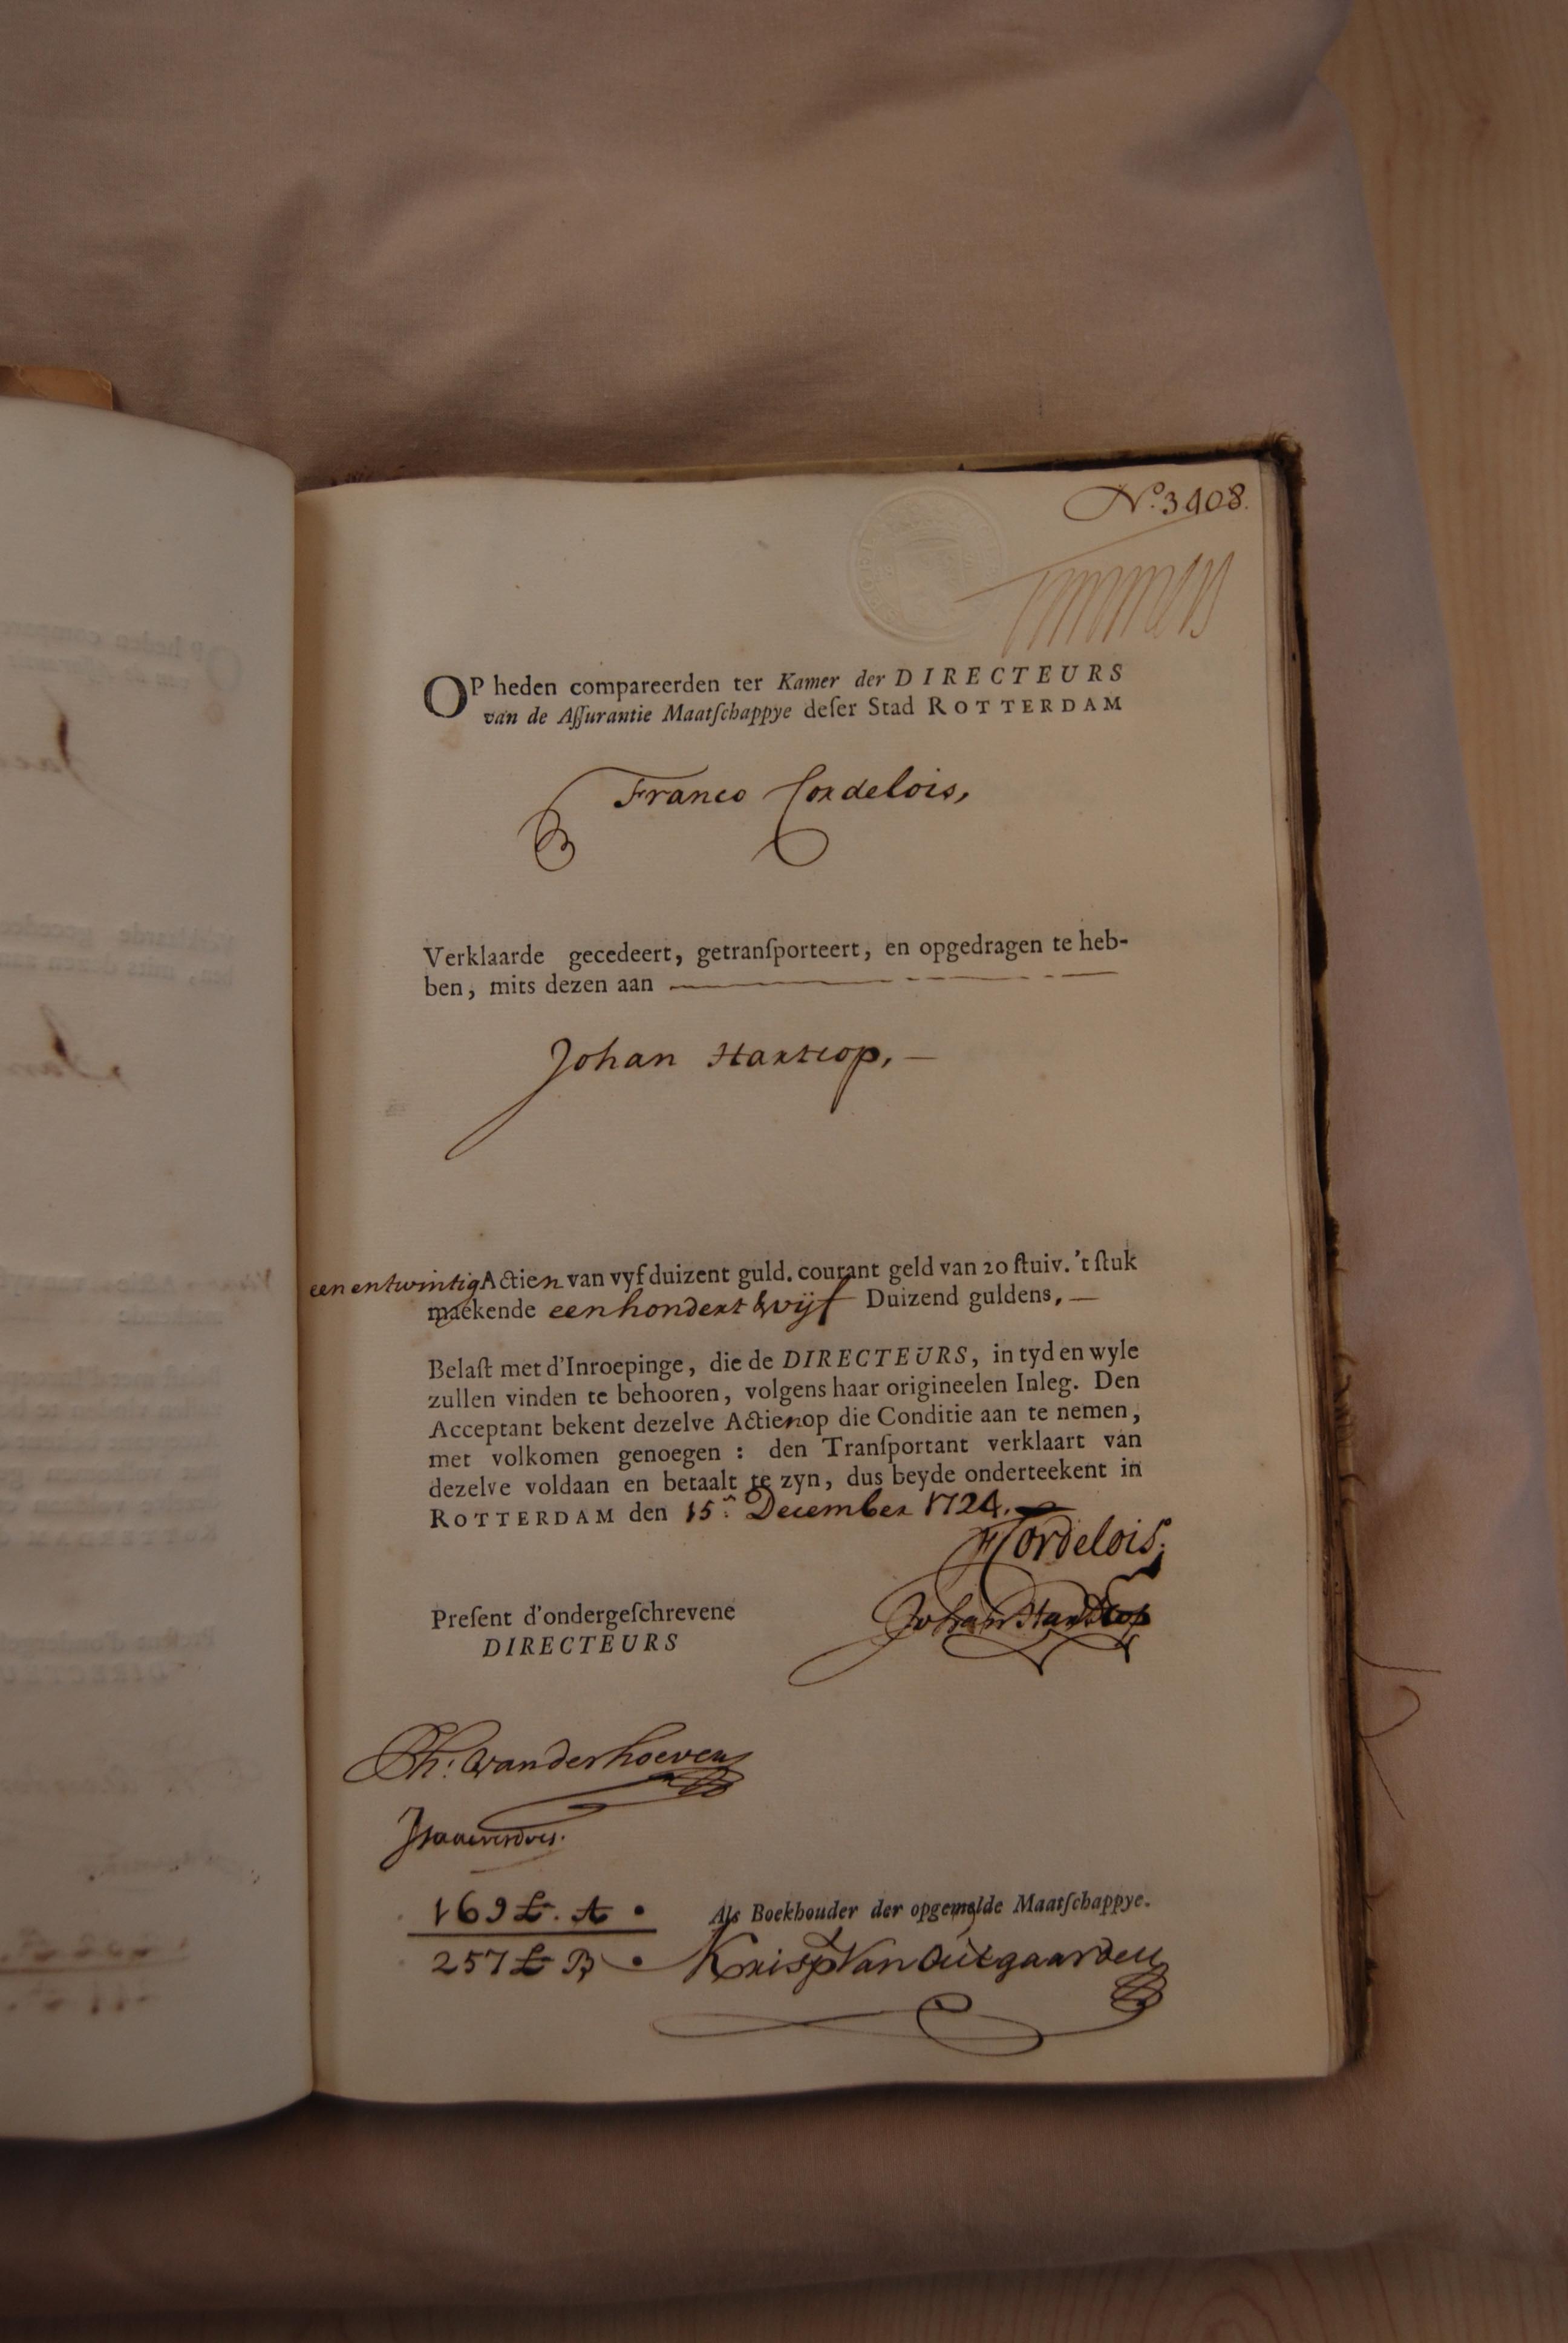 No. 3408.
OP heden compareerden ter Kamer der DIRECTEURS
van de Aſſurantie Maatſchappye deſer Stad ROTTERDAM
Franco Cordelois,
Verklaarde gecedeert, getranſporteert, en opgedragen te heb-
ben, mits dezen aan
Johan Hartcop, —
een entwintig Actien van vyf duizent guld. courant geld van 20 ſtuiv. 't ſtuk
maekende een hondert & vijf Duizend guldens, —
Belaſt met d'Inroepinge, die de DIRECTEURS, in tyd en wyle
zullen vinden te behooren, volgens haar origineelen Inleg. Den
Acceptant bekent dezelve Actien op die Conditie aan te nemen,
met volkomen genoegen : den Tranſportant verklaart van
dezelve voldaan en betaalt te zyn, dus beyde onderteekent in
ROTTERDAM den 15n. December 1724.
FCordelois.
Johan Hartcop
Preſent d'ondergeſchrevene
DIRECTEURS
Ph: vanderhoeven
169 £. A.
Als Boekhouder der opgemelde Maatſchappye.
257 £ B.
Krisp Van Outgaarden